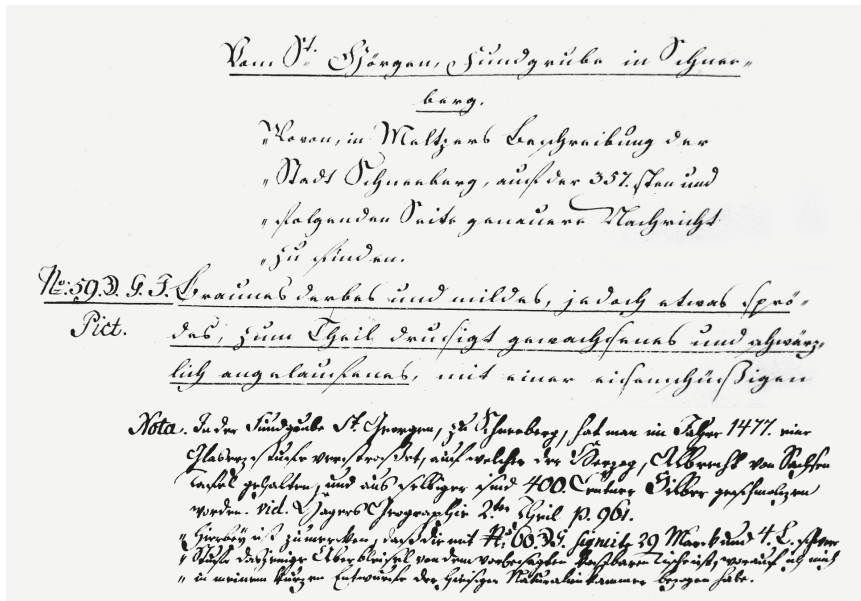 Vom St. Görgen, Fundgrube in Schnee-
berg.
"Wovon, in Meltzers Beschreibung der
"Stadt Schneeberg, auf der 357. sten und
"folgenden Seite genauere Nachricht
"zu finden.
No: 59. G. J. Braunes derbes und mildes, jedoch etwas sprö-
Pict. des, zum Theil drusigt gewachsenes und schwärz-
lich angelaufenes, mit einer eisenschüßigen
Nota. In der Fundgrube St. Georgen, zu Schneeberg, hat man im Jahre 1477. eine
Glaserzstuffe verstroßet, auf welcher der Herzog, Albrecht von Sachsen
Tafel gehalten, und aus selbiger sind 400. Centner Silber geschmolzen
worden. vid. Hägers Geographie 2.ter Theil p. 961.
"Hierbey ist zu mercken, daß die mit No. 60. signirte 29 Marck und 4. L. schwere
"Stuffe dasjenige Überbleisel von dem vorbesagten kostbaren Tische ist, worauf ich mich
"in meinem kurzen Entwurfe der hiesigen Naturalienkammer bezogen habe.